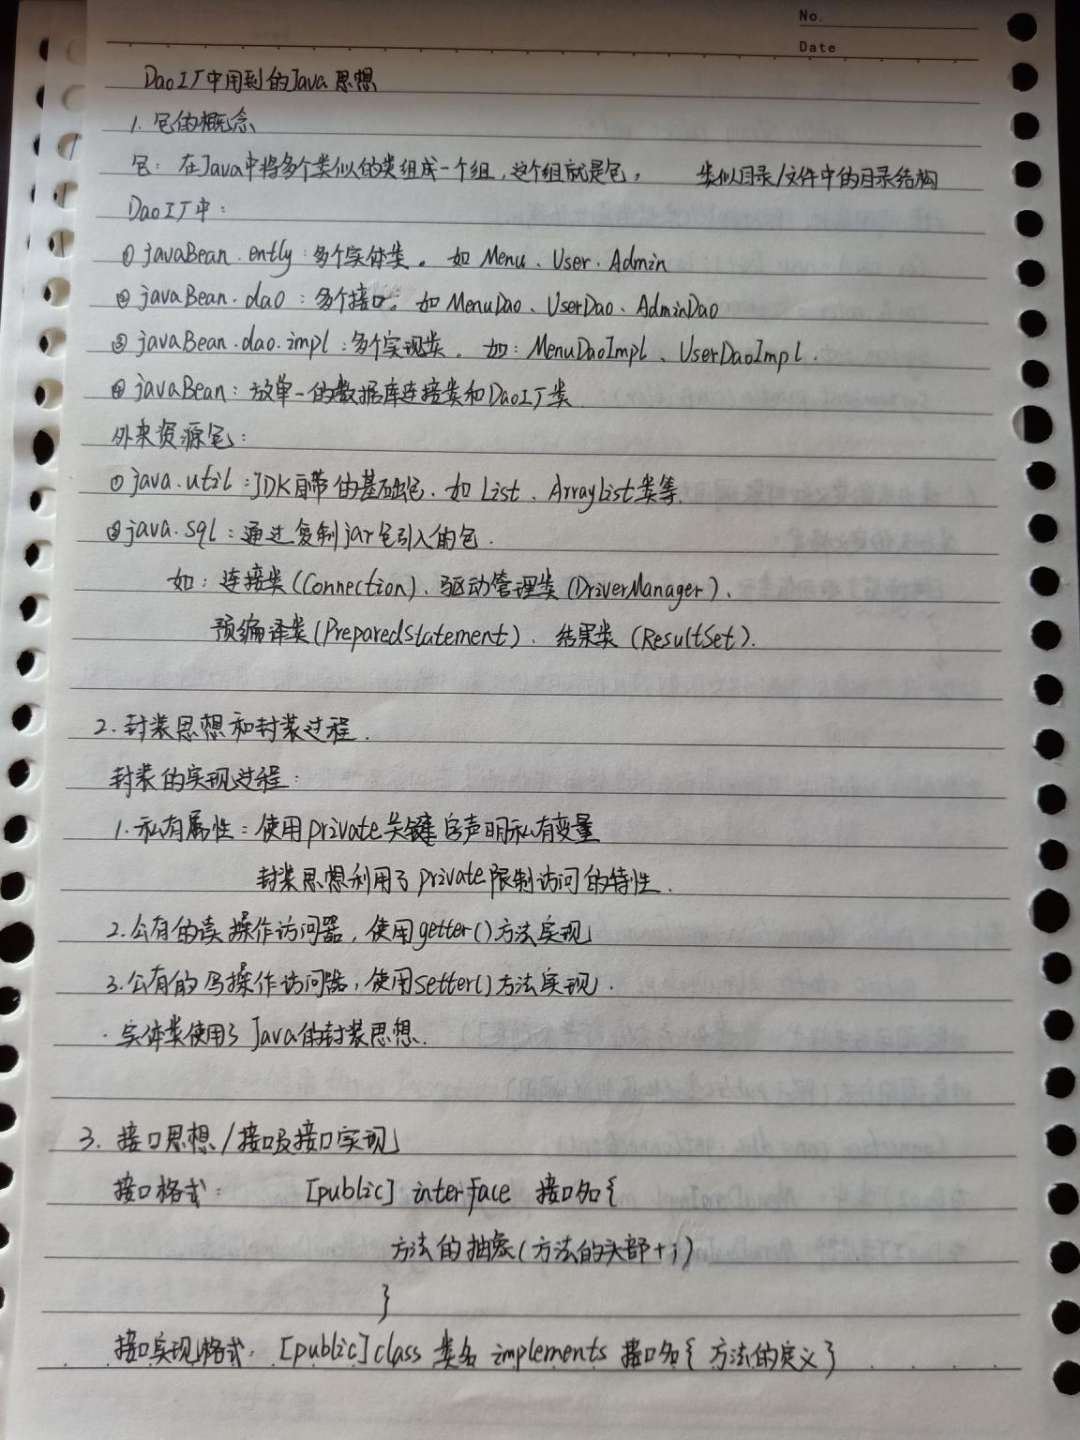 No.
Date
Dao工厂中用到的Java思想
1. 包的概念
包：在Java中将多个类似的类组成一个组，这个组就是包。 类似目录/文件中的目录结构
Dao工厂中：
① javaBean.ently：多个实体类。如 Menu、User、Admin
② javaBean.dao：多个接口。如 MenuDao、UserDao、AdminDao
③ javaBean.dao.impl：多个实现类。如：MenuDaoImpl、UserDaoImpl.
④ javaBean：放单一的数据库连接类和Dao工厂类
外来资源包：
① java.util：JDK自带的基础包.如 List、Arraylist类等.
② java.sql：通过复制jar包引入的包.
如：连接类(Connection)、驱动管理类(DriverManager)、
预编译类(PreparedStatement)、结果类(ResultSet).
2.封装思想和封装过程.
封装的实现过程：
1.私有属性：使用private关键字声明私有变量
封装思想利用了private限制访问的特性.
2.公有的读操作访问器，使用getter()方法实现
3.公有的写操作访问器，使用setter()方法实现.
·实体类使用了Java的封装思想.
3.接口思想/接口及接口实现
接口格式： [public] interface 接口名{
方法的抽象(方法的头部+;)
}
接口实现格式：[public]class 类名 implements 接口名{方法的定义}